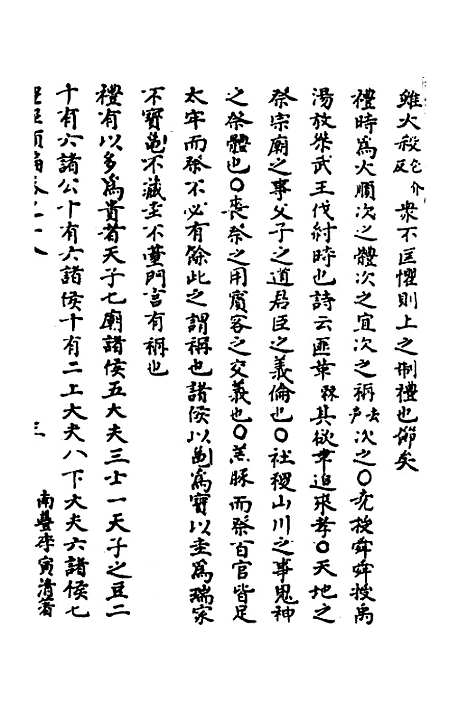 雖大殺色介反衆不匡懼則上之制禮也節矣
禮時爲大順次之體次之宜次之稱去声次之○堯授舜舜授禹
湯放桀武王伐紂時也詩云匪革棘其欲聿追來孝○天地之
祭宗廟之事父子之道君臣之義倫也○社稷山川之事鬼神
之祭體也○喪祭之用賓客之交義也○羔豚而祭百官皆足
太牢而祭不必有餘此之謂稱也諸侯以龜爲寶以圭爲瑞家
不寶龜不藏圭不臺門言有稱也
禮有以多爲貴者天子七廟諸侯五大夫三士一天子之豆二
十有六諸公十有六諸侯十有二上大夫八下大夫六諸侯七
三
南豐李寅清著